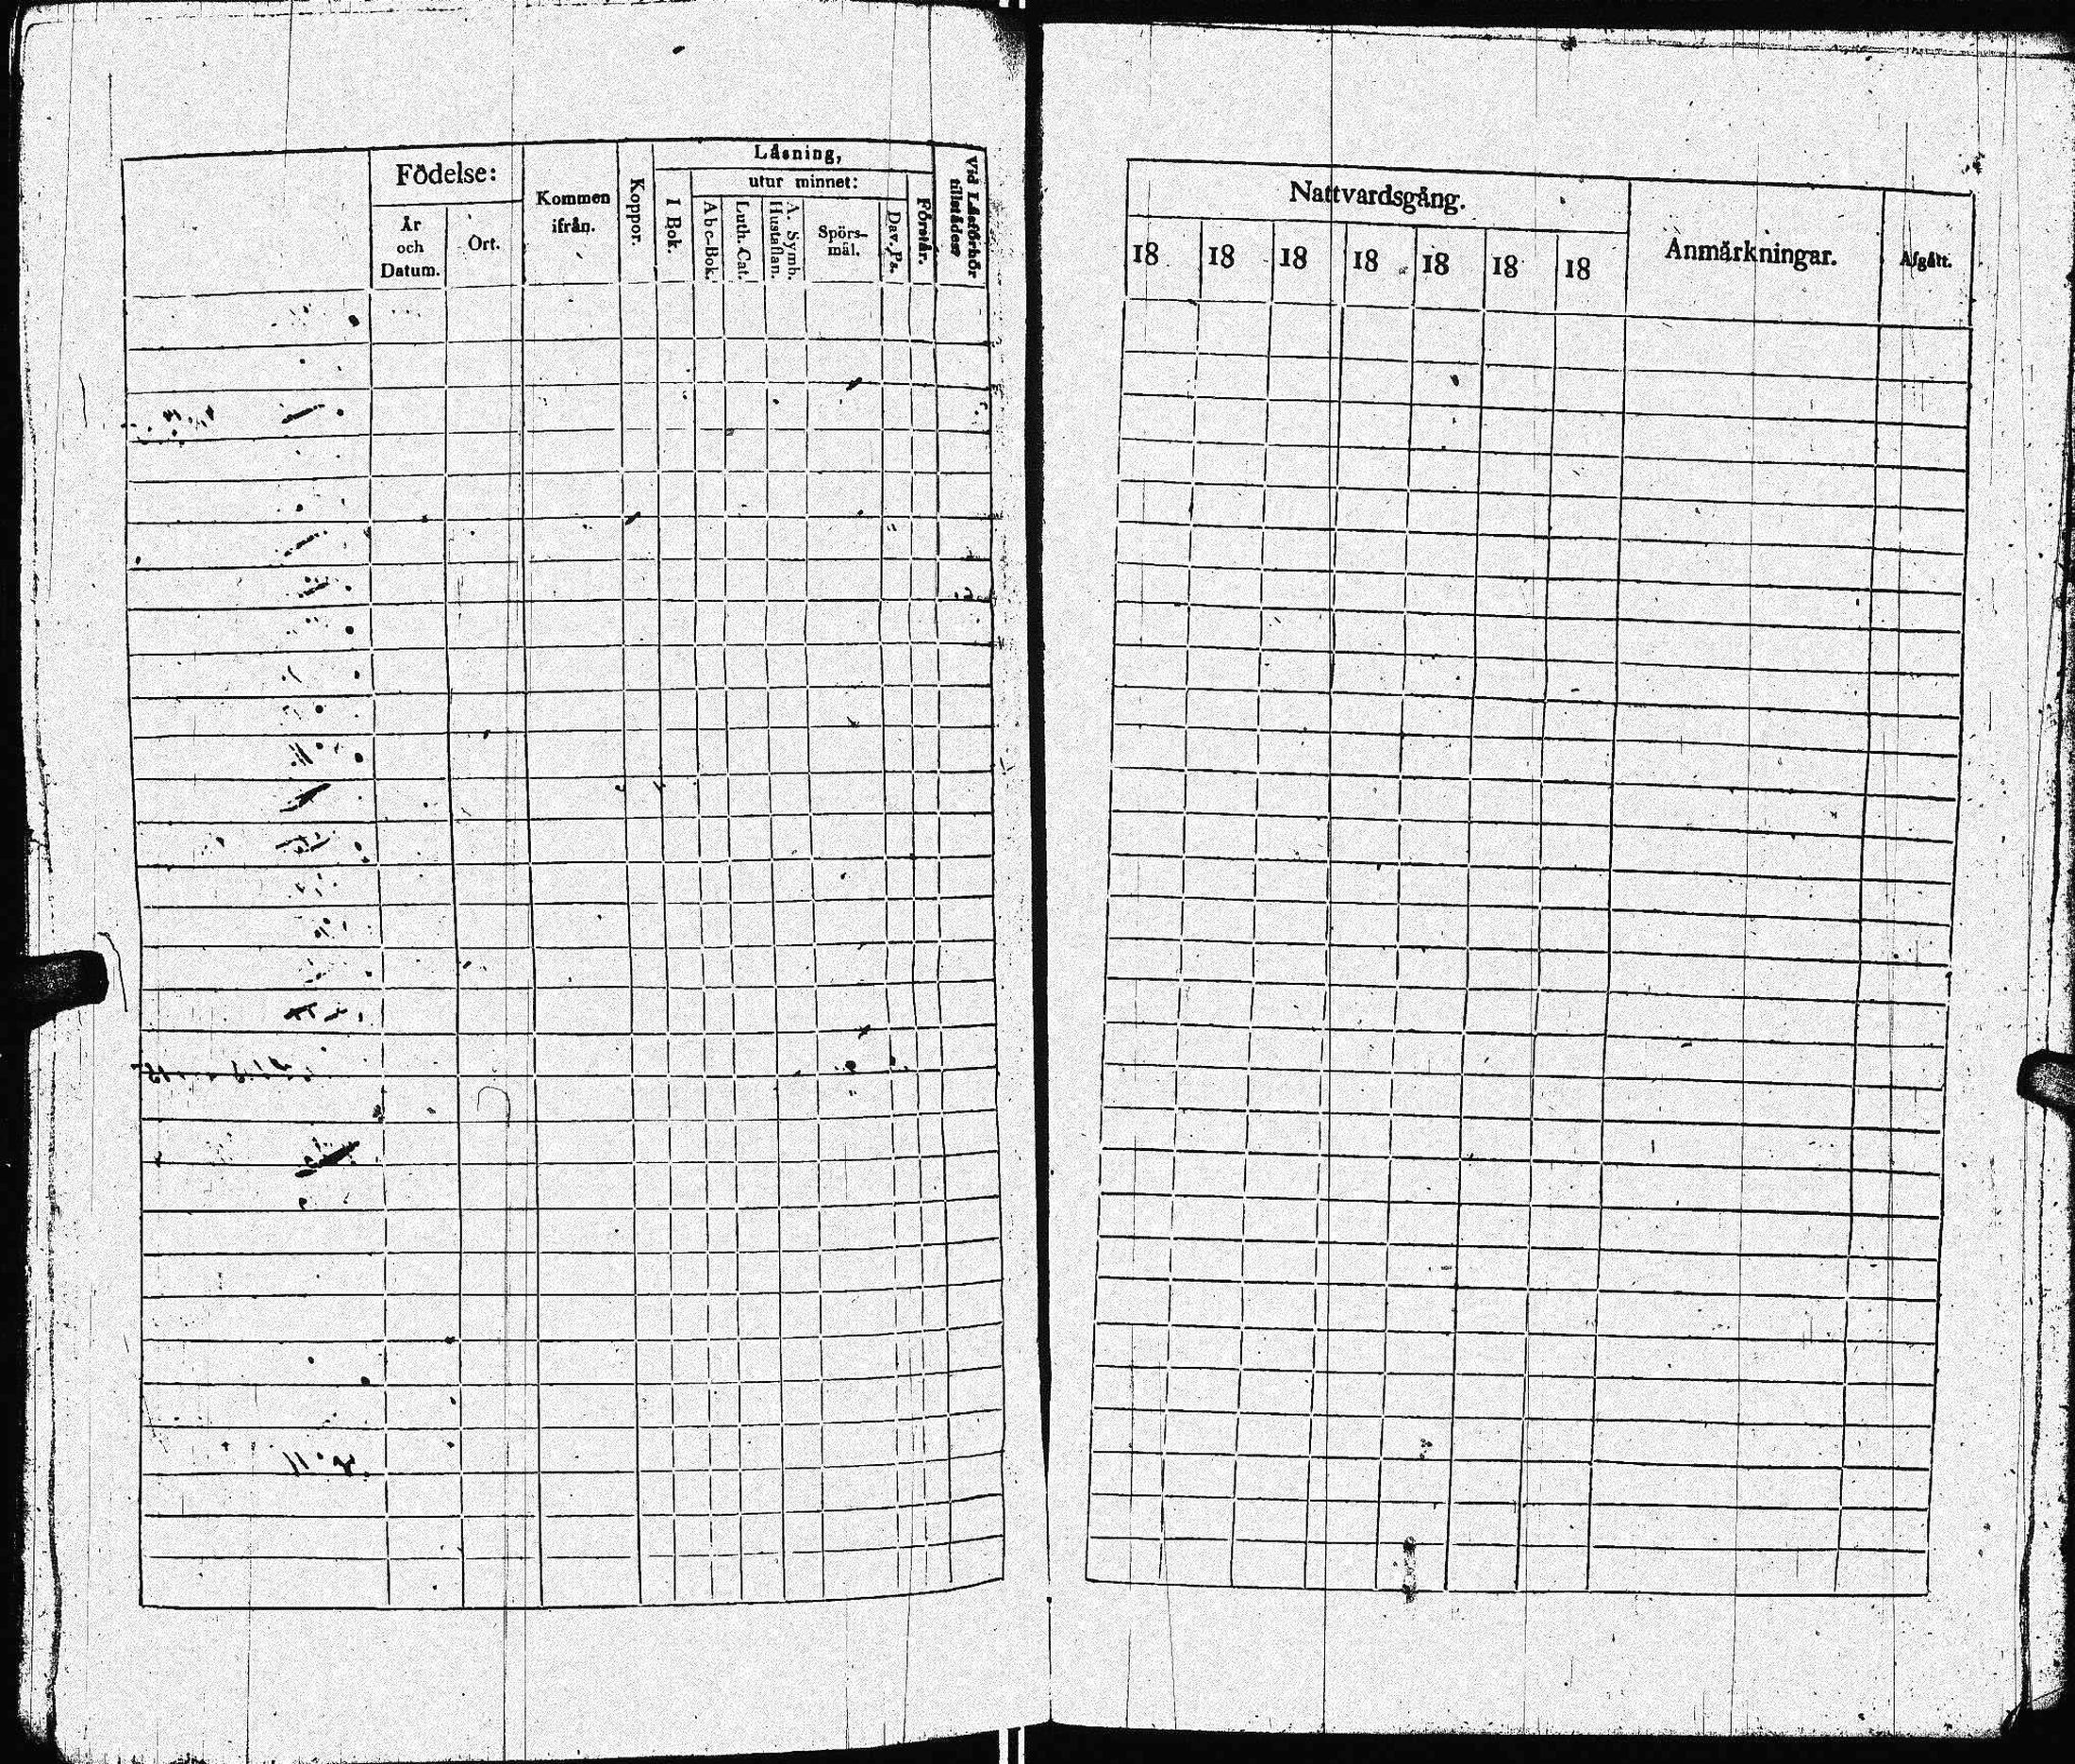 Födelse:
År
och
Datum.
Ort.
Kommen
ifrån.
Koppor.
Läsning,
utur minnet:
I Bok.
Abc-Bok.
Luth. Cat.
A. Symb.
Hustaflan.
Spörs-
mål.
Dav. Ps.
Förstår.
Vid Läsförhör
tillstädes
Nattvardsgång.
18 18 18 18 18 18 18
Anmärkningar.
Afgått.